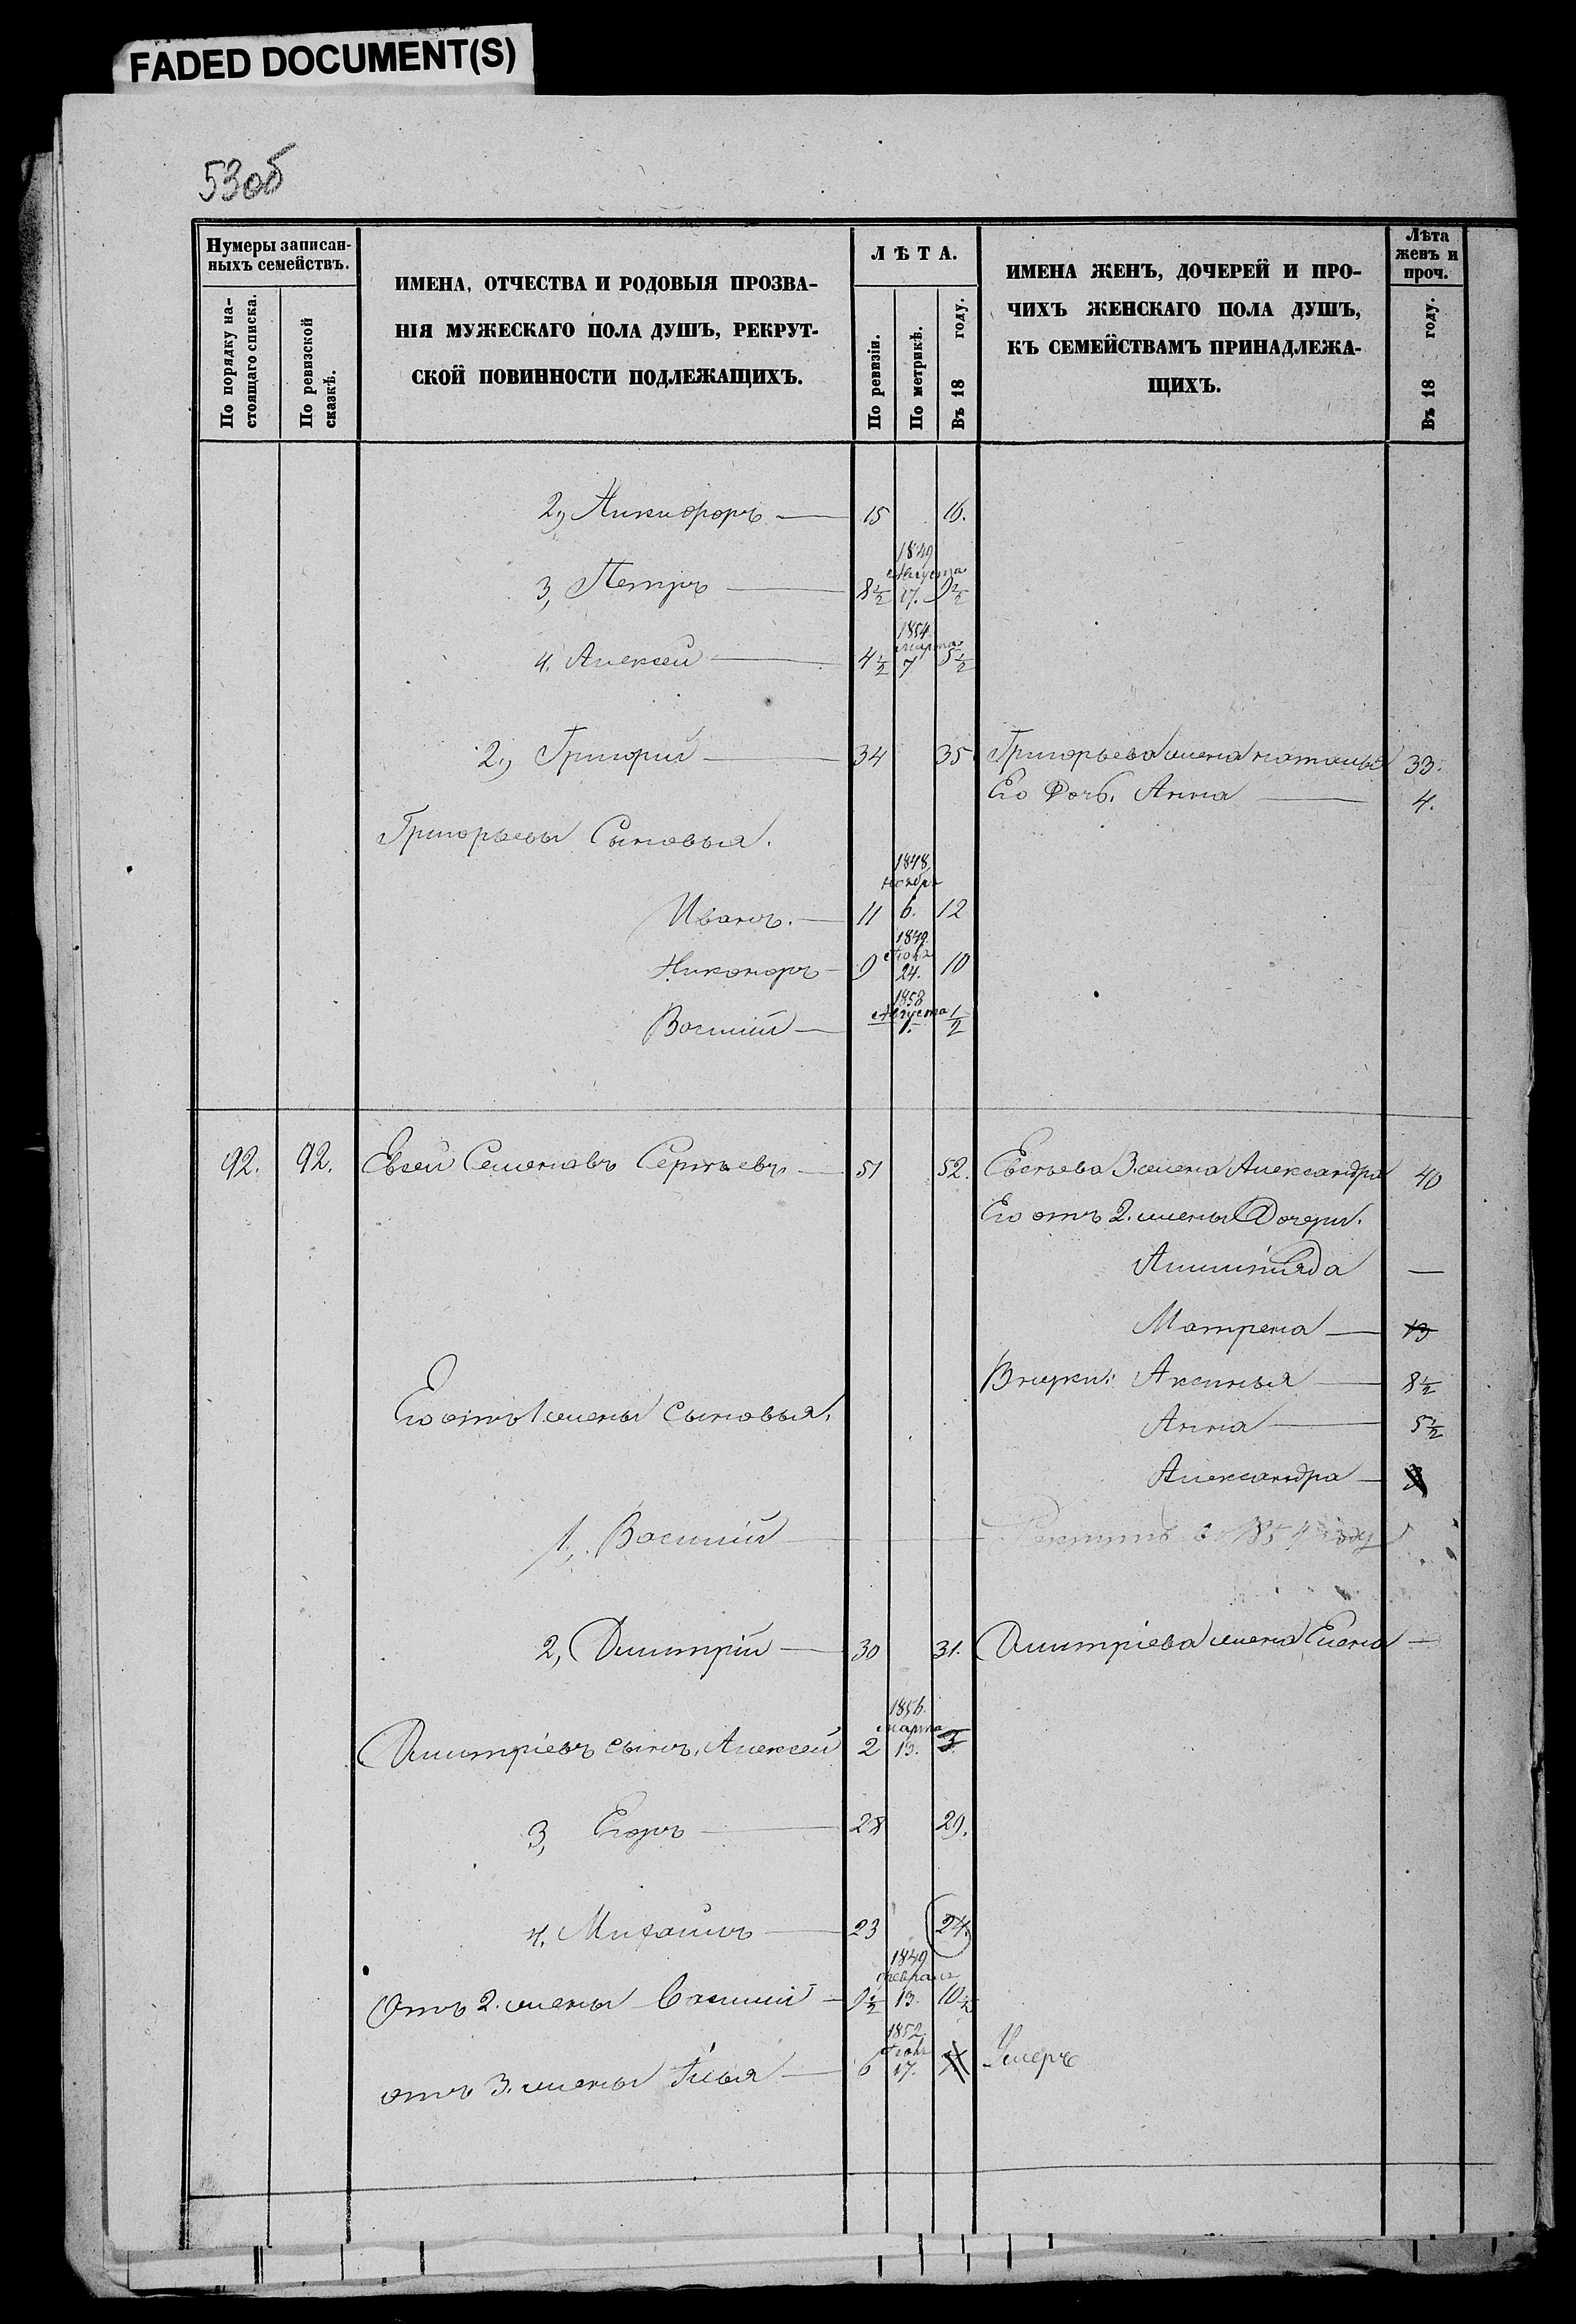 FADED DOCUMENT(S)
53об
Нумеры записан-
ныхъ семействъ.
По порядку на-
стоящаго списка.
По ревизской
сказкѣ.
ИМЕНА, ОТЧЕСТВА И РОДОВЫЯ ПРОЗВА-
НІЯ МУЖЕСКАГО ПОЛА ДУШЪ, РЕКРУТ-
СКОЙ ПОВИННОСТИ ПОДЛЕЖАЩИХЪ.
ЛѢТА.
По ревизіи.
По метрикѣ.
Въ 18 году.
ИМЕНА ЖЕНЪ, ДОЧЕРЕЙ И ПРО-
ЧИХЪ ЖЕНСКАГО ПОЛА ДУШЪ,
КЪ СЕМЕЙСТВАМЪ ПРИНАДЛЕЖА-
ЩИХЪ.
Лѣта
женъ и
проч.
Въ 18 году.
2, Никифоръ — 15 16.
3, Петръ — 8½ 1849 Августа 17. 9½
4, Алексей — 4½ 1854 марта 7 5½
2, Григорий — 34 35 Григорьева жена Наталья 33.
Его Дочь. Анна — 4.
Григорьевы Сыновья.
Иванъ. — 11 1848 Ноябр 6. 12
Никоноръ — 9 1849. 24. 10
Василий — 1858 Августа 1. ½
92. 92. Евсей Семеновъ Сергѣевъ — 51 52. Евсѣева 3. жена Александра 40
Его отъ 2. жены Дочери.
—
Матрена — 13
Внуки: Аксинья — 8½
Его отъ 1 жены Сыновья.
Анна — 5½
Александра — 3
1, Василий — в 1854 году
2, Дмитрій — 30 31. Дмитріева жена Елена —
Дмитріевъ сынъ, Алексей 2 1856. марта 13. 3
3, Егоръ — 28 29.
4, Михаилъ — 23 24.
Отъ 2. жены Василий — 9½ 1849 февраля 13. 10½
отъ 3. жены Илья — 6 1852 17. 7 Умеръ